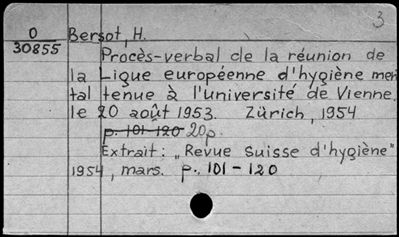 3
O Bersot, H.
30855
Procès-verbal de la réunion de
la Ligue européenne d'hygiène men
tal tenue à l'université de Vienne,
le 20 août 1953. Zürich, 1954
p. 101-120 20p.
Extrait: „Revue Suisse d'hygiène"
1954, mars. p. 101-120